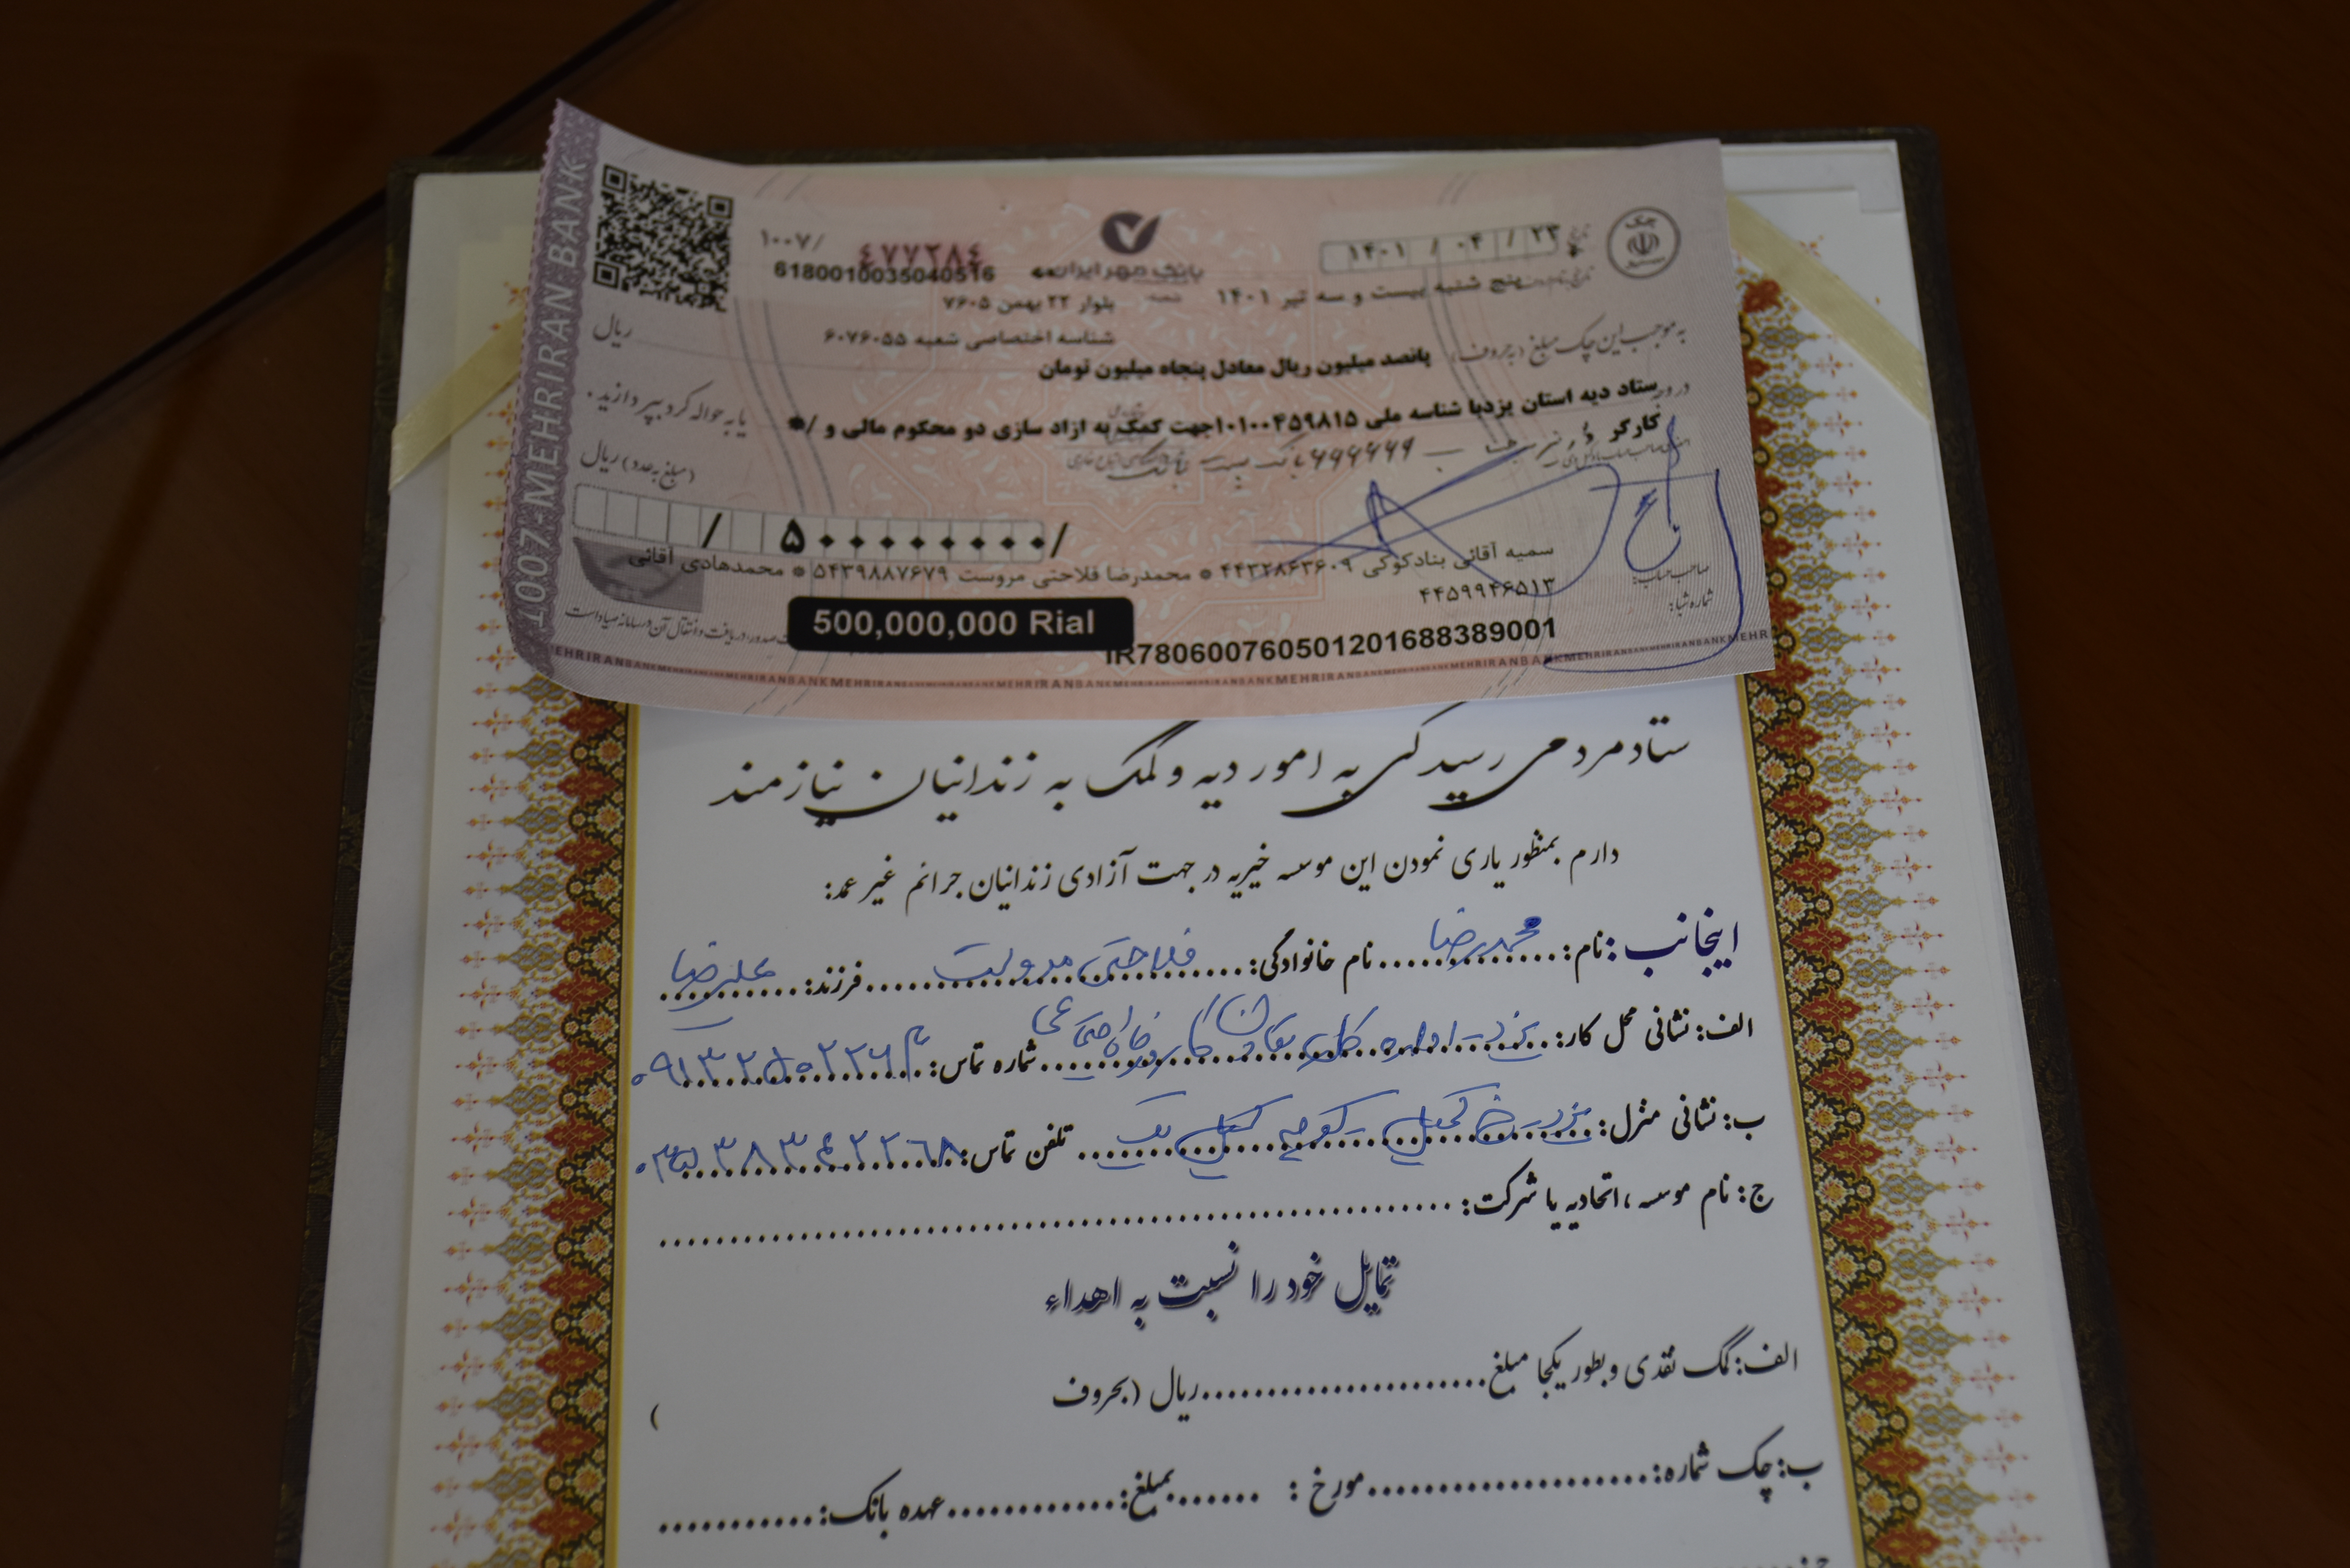 1007-MEHRIRAN BANK
چک
۱۴۰۱ / ۰۴ / ۲۳
تاریخ
۱۰۰۷/ ۴۷۷۲۸۴
6180010035040516
بانک مهر ایران
پنج شنبه بیست و سه تیر ۱۴۰۱
شعبه بلوار ۲۲ بهمن ۷۶۰۵
شناسه اختصاصی شعبه ۶۰۷۶۰۵۵
به موجب این چک مبلغ (به حروف) پانصد میلیون ریال معادل پنجاه میلیون تومان ریال
در وجه ستاد دیه استان یزدبا شناسه ملی ۱۰۱۰۰۴۵۹۸۱۵جهت کمک به ازاد سازی دو محکوم مالی و /*
یا به حواله کرد بپردازید .
کارگر
(مبلغ به عدد) ریال
/ ۵۰۰۰۰۰۰۰۰/
سمیه آقائی بنادکوکی ۴۴۳۲۸۶۳۶۰۹ * محمدرضا فلاحتی مروست ۵۴۳۹۸۸۷۶۷۹ * محمدهادی آقائی
۴۴۵۹۹۴۶۵۱۳
صاحب حساب:
شماره شبا:
500,000,000 Rial
IR780600760501201688389001
صدور، دریافت و انتقال آن در سامانه صیاد است
MEHRIRANBANKMEHRIRANBANKMEHRIRANBANKMEHRIRANBANK
ستاد مردمی رسیدگی به امور دیه و کمک به زندانیان نیازمند
دارم بمنظور یاری نمودن این موسسه خیریه در جهت آزادی زندانیان جرائم غیر عمد:
اینجانب: نام: محمدرضا نام خانوادگی: فلاحتی مروست فرزند: علیرضا
الف: نشانی محل کار: یزد - اداره کل تعاون کار و رفاه اجتماعی شماره تماس: ۰۹۱۳۲۵۰۲۲۶۳
ب: نشانی منزل: یزد - خ کمیل - کوچه کمیل یک تلفن تماس: ۰۳۵۳۸۳۶۲۲۶۸
ج: نام موسسه ، اتحادیه یا شرکت:
تمایل خود را نسبت به اهداء
الف: کمک نقدی و بطور یکجا مبلغ ریال (بحروف )
ب: چک شماره: مورخ : بمبلغ: عهده بانک: